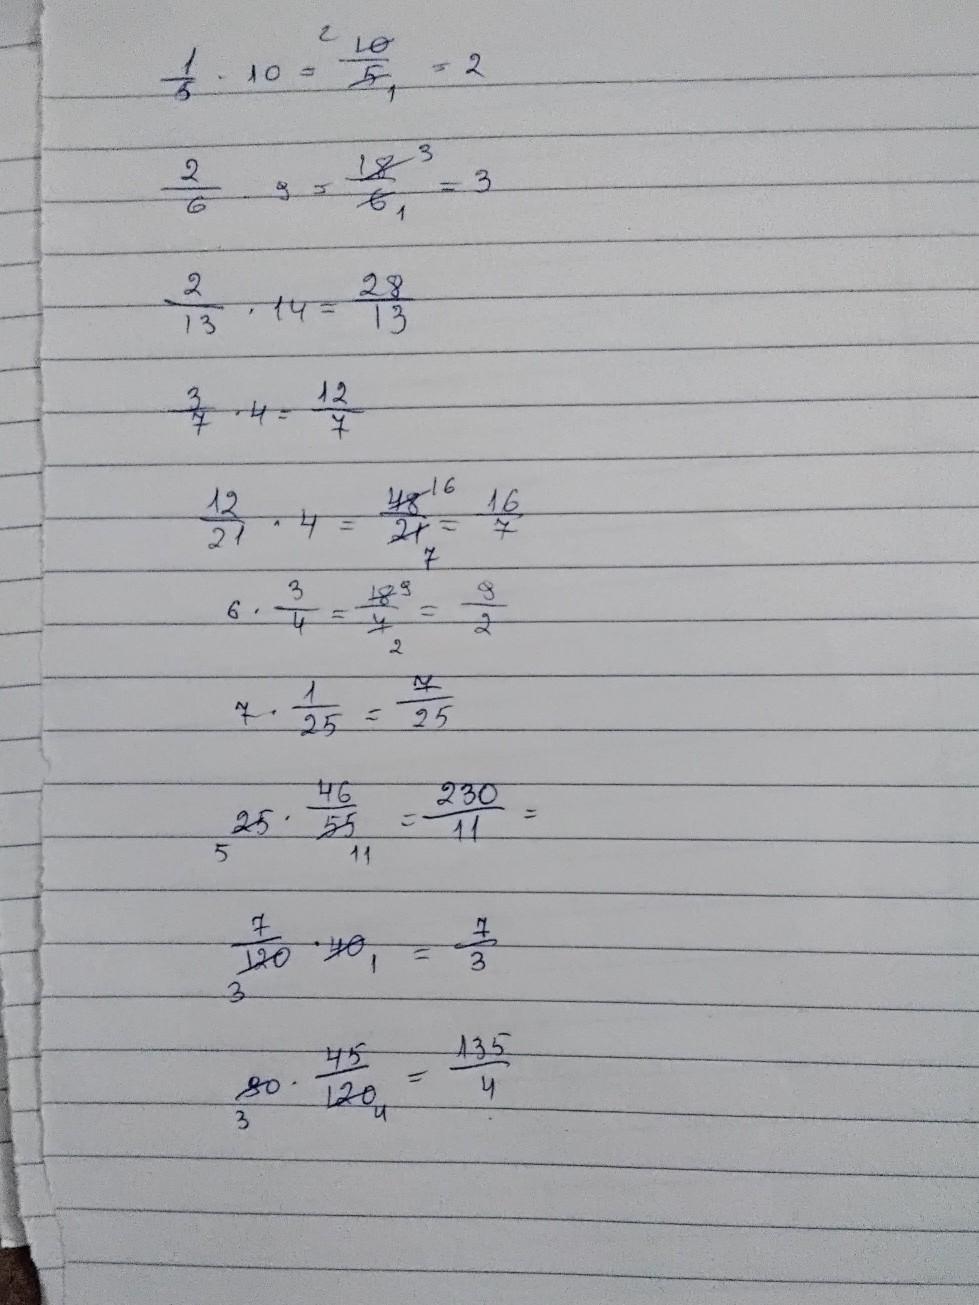 1/5 · 10 = 2 10/5 1 = 2
2/6 · 9 = 18/6 3 1 = 3
2/13 · 14 = 28/13
3/7 · 4 = 12/7
12/21 · 4 = 48/21 16 7 = 16/7
6 · 3/4 = 18/4 9 2 = 9/2
7 · 1/25 = 7/25
5 25 · 46/55 11 = 230/11 =
7/120 3 · 40 1 = 7/3
90 3 · 45/120 4 = 135/4